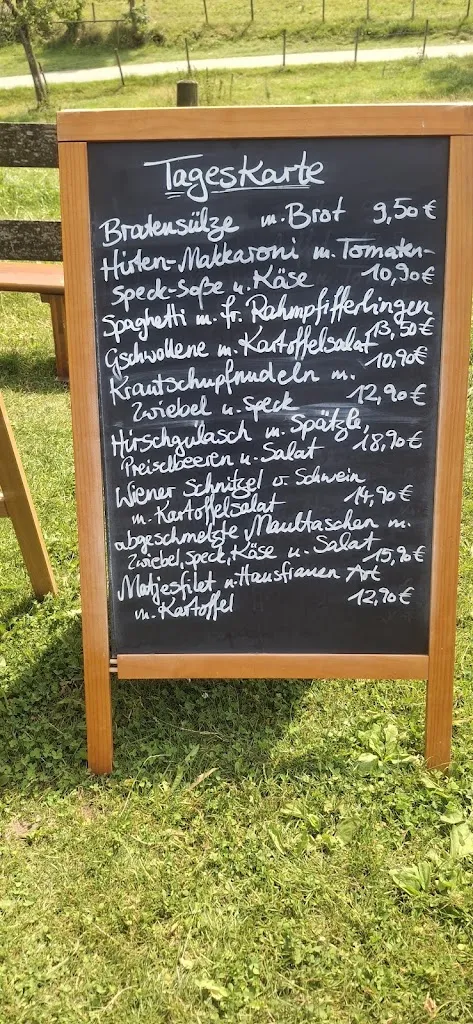 Tageskarte
Bratensülze m. Brot 9,50€
Hirten-Makkaroni m. Tomaten-
Speck-Soße u. Käse 10,90€
Spaghetti m. fr. Rahmpfifferlingen
13,50€
Gschwollene m. Kartoffelsalat
10,90€
Krautschupfnudeln m.
Zwiebel u. Speck 12,90€
Hirschgulasch m. Spätzle,
Preiselbeeren u. Salat 18,90€
Wiener Schnitzel v. Schwein
m. Kartoffelsalat 14,90€
abgeschmelzte Maultaschen m.
Zwiebel, Speck, Käse u. Salat 15,90€
Matjesfilet n. Hausfrauen Art
m. Kartoffel 12,90€